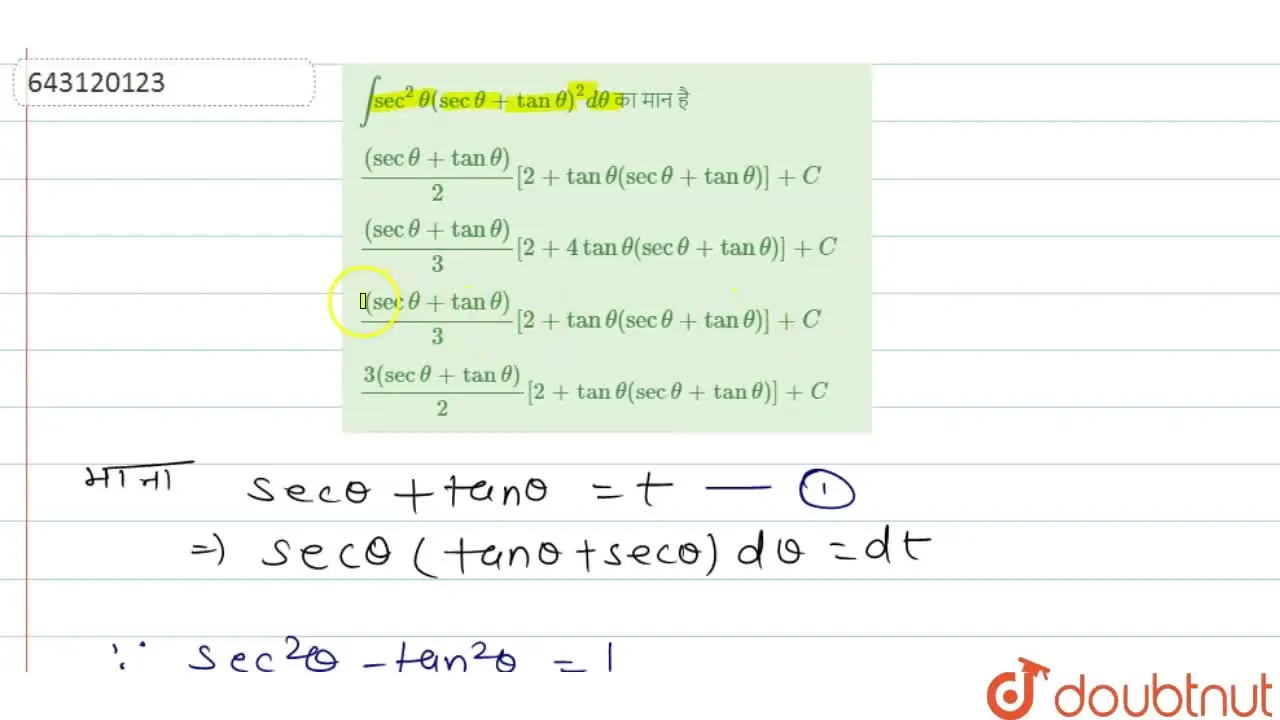 643120123
∫sec² θ(sec θ + tan θ)² dθ का मान है
(sec θ + tan θ)/2 [2 + tan θ(sec θ + tan θ)] + C
(sec θ + tan θ)/3 [2 + 4 tan θ(sec θ + tan θ)] + C
(sec θ + tan θ)/3 [2 + tan θ(sec θ + tan θ)] + C
3(sec θ + tan θ)/2 [2 + tan θ(sec θ + tan θ)] + C
माना secθ + tanθ = t — ①
⇒ secθ (tanθ + secθ) dθ = dt
∵ sec²θ - tan²θ = 1
doubtnut